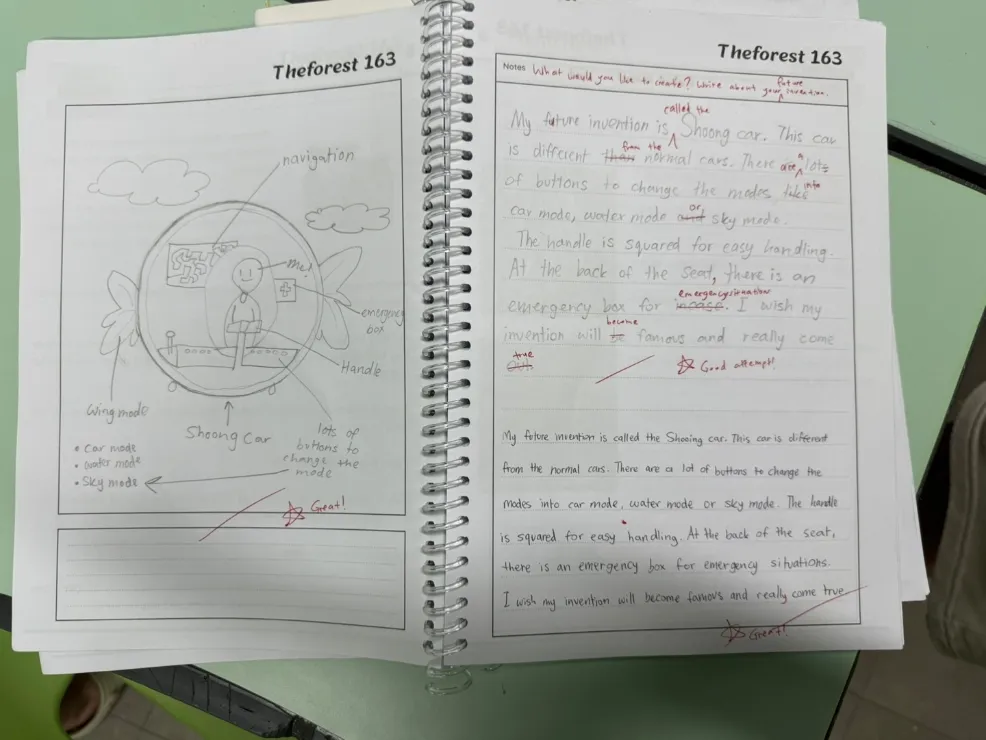 Theforest 163
navigation
me!
emergency
box
Handle
Wing mode
Shoong Car
lots of
buttons to
change the
mode
• Car mode
• water mode
• Sky mode
Great!
Theforest 163
Notes What would you like to create? Write about your future invention.
called the
My future invention is Shoong car. This car
from the
is different than normal cars. There are a lots
into
of buttons to change the modes, take
or
car mode, water mode and sky mode.
The handle is squared for easy handling.
At the back of the seat, there is an
emergency situation
emergency box for incase. I wish my
become
invention will be famous and really come
true
out
Good attempt!
My future invention is called the Shooing car. This car is different
from the normal cars. There are a lot of buttons to change the
modes into car mode, water mode or sky mode. The handle
is squared for easy handling. At the back of the seat,
there is an emergency box for emergency situations.
I wish my invention will become famous and really come true
Great!